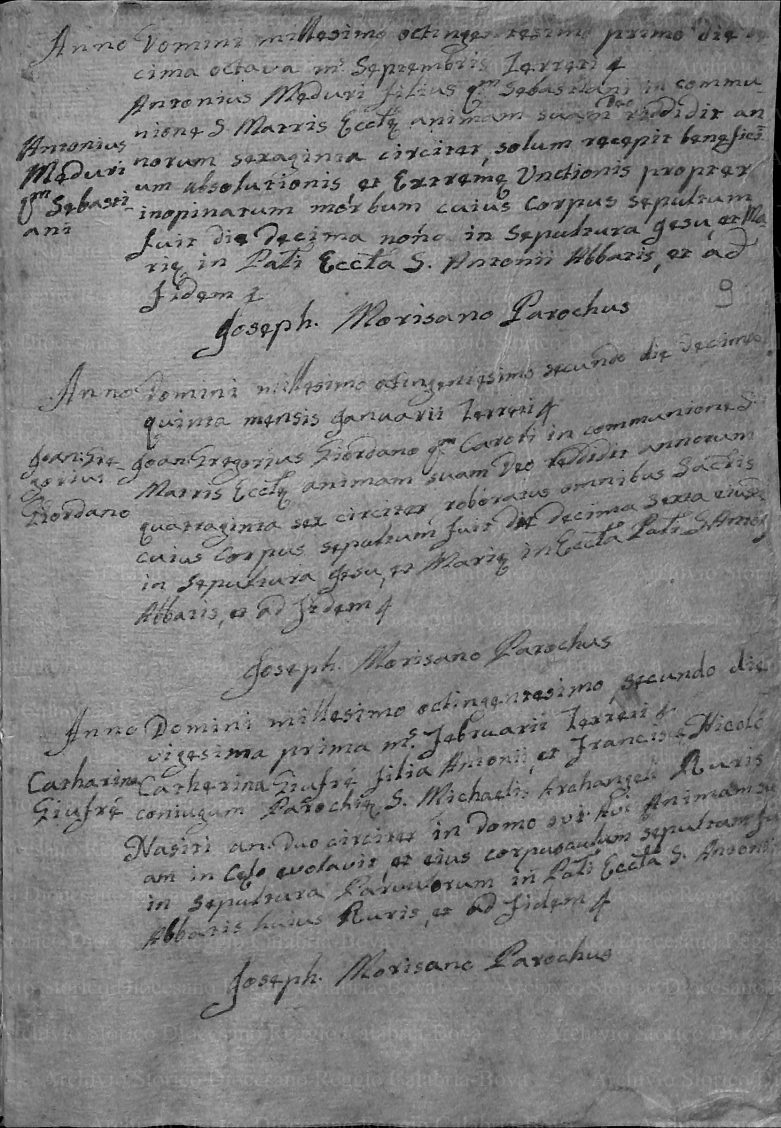 Anno Domini millesimo octingentesimo primo die de
cima octava m.s Septembris Terreti &
Antonius Meduri filius q.m Sebastiani in commu-
nione S. Matris Ecctę animam suam Deo reddidit an
Antonius
Meduri
q.m Sebasti-
ani
norum sexaginta circiter, solum recepit benefici
um absolutionis et Extremę Unctionis propter
inopinatum morbum cuius Corpus sepultum
fuit die decima nona in Sepultura Jesu, et Ma
rię in Pati Eccta S. Antonii Abbatis, et ad
fidem &
9
Joseph. Morisano Parochus
Anno Domini millesimo octingentesimo secundo die decima
quinta mensis Januarii Terreti &
Joan: Gre-
gorius
Giordano
Joan: Gregorius Giordano q.m Caroli in communione S.
Matris Ecctę animam suam Deo reddidit annorum
quatraginta sex circiter roboratus omnibus Sacris
cuius Corpus sepultum fuit die decima sexta eiusd.
in Sepultura Jesu, et Marię in Eccta Pati S. Anto.
Abbatis, et ad fidem &
Joseph. Morisano Parochus
Anno Domini millesimo octingentesimo secundo die
vigesima prima m.s Februarii Terreti &.
Catharina
Giufré
Catherina Giufré filia Antonii, et Francisc Nicoló
coniugum Parochię S. Michaelis Archangeli Ruris
Nasiti an. duo circiter in domo Avi Animam su
am in Cęlo evolavit, et eius corpusculum sepultum fu
in Sepultura Parvulorum in Pati Eccta S. Antonii
Abbatis huius Ruris, et ad fidem &
Joseph. Morisano Parochus
Archivio Storico Diocesano Reggio Calabria-Bova